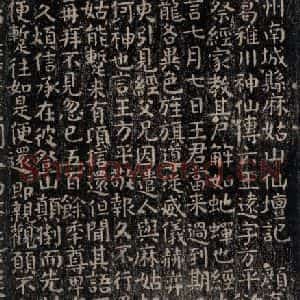 州南城縣麻姑山仙壇記顏
葛稚川神仙傳云王遠字方平
蔡經家教其尸解如虵蟬也經
言七月七日王君當來過到期
龍各異色旌旗導從威儀赫弈
臾引見經父兄因遣人與麻姑
何神也言王方平敬報久不行
姑能蹔來有頃信還但聞其語
再拜不見忽已五百餘季尊卑
久煩信承在彼登山顛倒而先
便蹔往如是便還即親觀願不